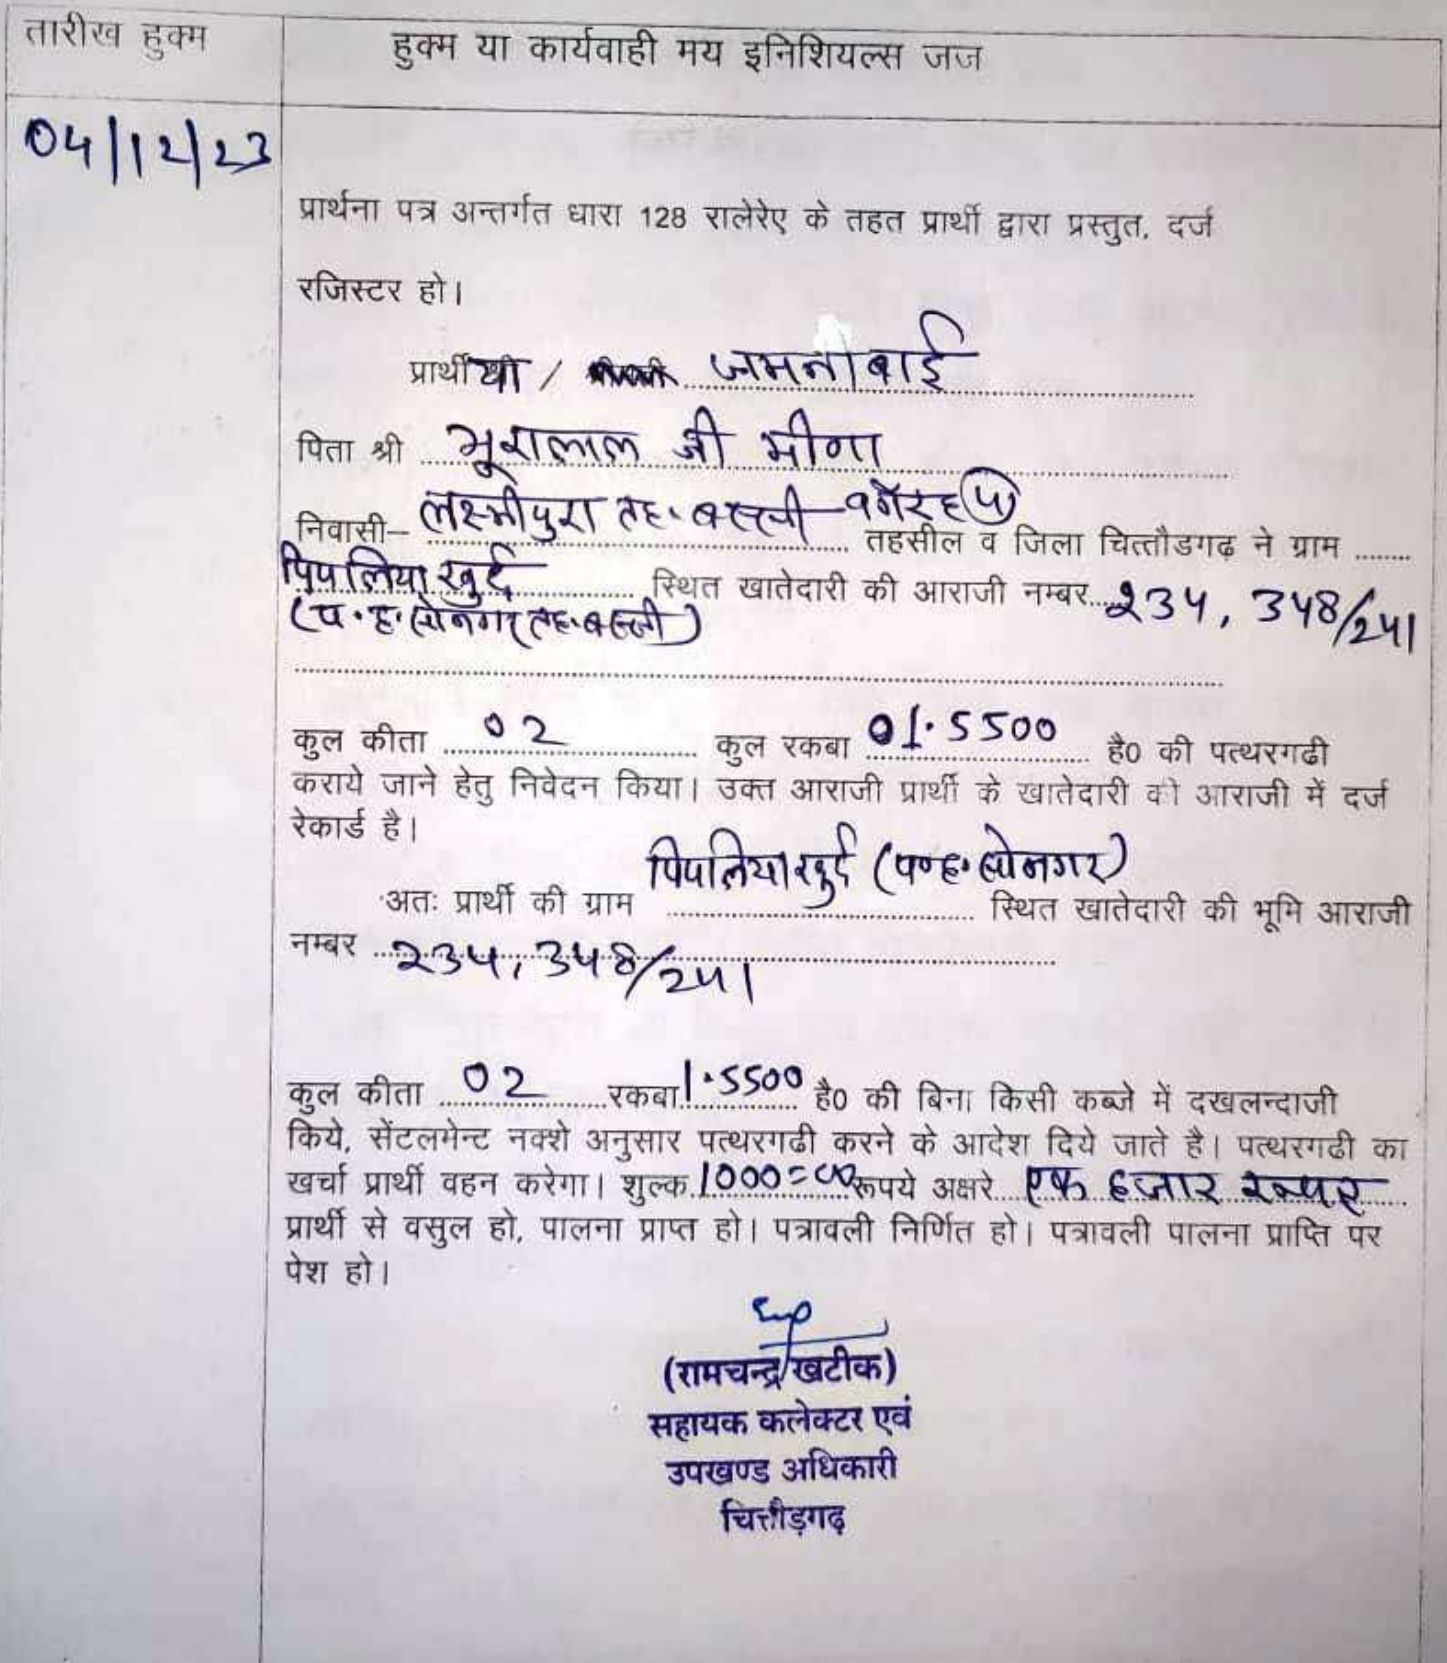 तारीख हुक्म
हुक्म या कार्यवाही मय इनिशियल्स जज
04/12/23
प्रार्थना पत्र अन्तर्गत धारा 128 रालेरेए के तहत प्रार्थी द्वारा प्रस्तुत, दर्ज
रजिस्टर हो।
प्रार्थीया / जमनाबाई
पिता श्री भूरालाल जी मीणा
निवासी– लक्ष्मीपुरा तह. बस्सी वगैरह तहसील व जिला चित्तौडगढ़ ने ग्राम
पिपलिया खुर्द स्थित खातेदारी की आराजी नम्बर 234, 348/241
(प.ह. सोनगर तह. बस्सी)
कुल कीता 02 कुल रकबा 01.5500 है0 की पत्थरगढी
कराये जाने हेतु निवेदन किया। उक्त आराजी प्रार्थी के खातेदारी की आराजी में दर्ज
रेकार्ड है।
अतः प्रार्थी की ग्राम पिपलिया खुर्द (प०ह. सोनगर) स्थित खातेदारी की भूमि आराजी
नम्बर 234, 348/241
कुल कीता 02 रकबा 1.5500 है0 की बिना किसी कब्जे में दखलन्दाजी
किये, सेंटलमेन्ट नक्शे अनुसार पत्थरगढी करने के आदेश दिये जाते है। पत्थरगढी का
खर्चा प्रार्थी वहन करेगा। शुल्क 1000=00 रूपये अक्षरे एक हजार रूपए
प्रार्थी से वसुल हो, पालना प्राप्त हो। पत्रावली निर्णित हो। पत्रावली पालना प्राप्ति पर
पेश हो।
(रामचन्द्र खटीक)
सहायक कलेक्टर एवं
उपखण्ड अधिकारी
चित्तौड़गढ़